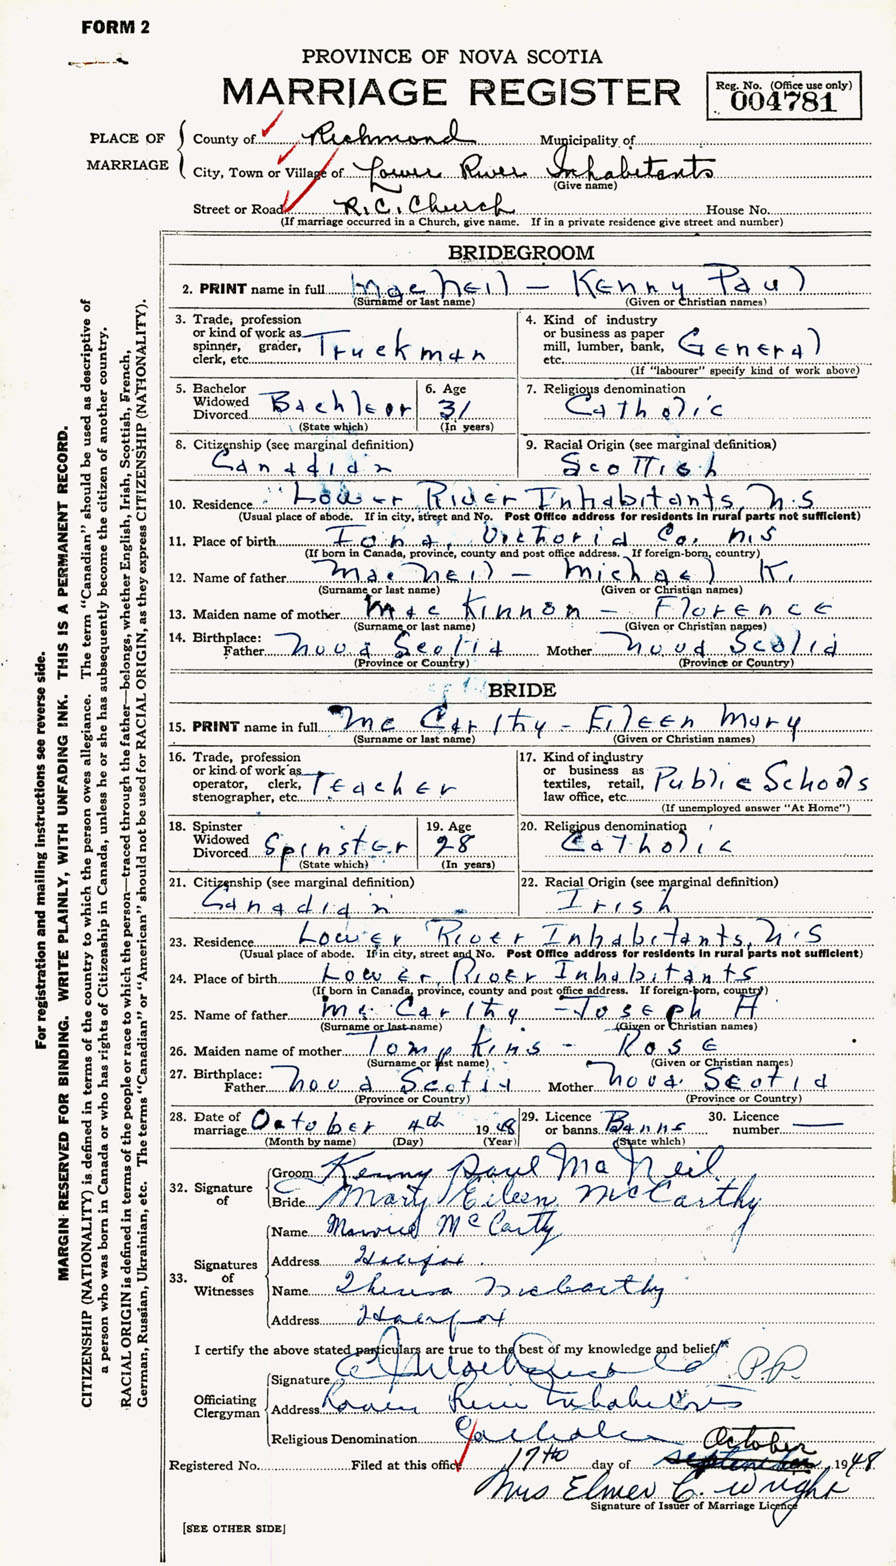 FORM 2
PROVINCE OF NOVA SCOTIA
MARRIAGE REGISTER
Reg. No. (Office use only)
004781
PLACE OF MARRIAGE
County of Richmond Municipality of
City, Town or Village of Lower River Inhabitants
(Give name)
Street or Road R.C. Church House No.
(If marriage occurred in a Church, give name. If in a private residence give street and number)
BRIDEGROOM
2. PRINT name in full MacNeil - Kenny Paul
(Surname or last name) (Given or Christian names)
3. Trade, profession or kind of work as spinner, grader, clerk, etc. Truckman
4. Kind of industry or business as paper mill, lumber, bank, etc. General
(If "labourer" specify kind of work above)
5. Bachelor Widowed Divorced Bachleor
(State which)
6. Age 31
(In years)
7. Religious denomination Catholic
8. Citizenship (see marginal definition) Canadian
9. Racial Origin (see marginal definition) Scottish
10. Residence Lower River Inhabitants, N.S
(Usual place of abode. If in city, street and No. Post Office address for residents in rural parts not sufficient)
11. Place of birth Iona, Victoria Co. N.S
(If born in Canada, province, county and post office address. If foreign-born, country)
12. Name of father MacNeil - Michael K.
(Surname or last name) (Given or Christian names)
13. Maiden name of mother MacKinnon - Florence
(Surname or last name) (Given or Christian names)
14. Birthplace: Father Nova Scotia Mother Nova Scotia
(Province or Country) (Province or Country)
BRIDE
15. PRINT name in full McCarthy - Eileen Mary
(Surname or last name) (Given or Christian names)
16. Trade, profession or kind of work as operator, clerk, stenographer, etc. Teacher
17. Kind of industry or business as textiles, retail, law office, etc. Public Schools
(If unemployed answer "At Home")
18. Spinster Widowed Divorced Spinster
(State which)
19. Age 28
(In years)
20. Religious denomination Catholic
21. Citizenship (see marginal definition) Canadian
22. Racial Origin (see marginal definition) Irish
23. Residence Lower River Inhabitants, N.S
(Usual place of abode. If in city, street and No. Post Office address for residents in rural parts not sufficient)
24. Place of birth Lower River Inhabitants
(If born in Canada, province, county and post office address. If foreign-born, country)
25. Name of father McCarthy - Joseph H
(Surname or last name) (Given or Christian names)
26. Maiden name of mother Tompkins - Rose
(Surname or last name) (Given or Christian names)
27. Birthplace: Father Nova Scotia Mother Nova Scotia
(Province or Country) (Province or Country)
28. Date of marriage October 4th 1948
(Month by name) (Day) (Year)
29. Licence or banns Banns
(State which)
30. Licence number
32. Signature of
Groom Kenny Paul MacNeil
Bride Mary Eileen McCarthy
33. Signatures of Witnesses
Name McCarty
Address Halifax
Name Theresa McCarthy
Address Halifax
I certify the above stated particulars are true to the best of my knowledge and belief.
Officiating Clergyman
Signature P.P.
Address Lower River Inhabitants
Religious Denomination Catholic
Registered No. Filed at this office 17th day of October 1948
Mrs Elmer C. Wright
Signature of Issuer of Marriage Licence
[SEE OTHER SIDE]
For registration and mailing instructions see reverse side.
MARGIN RESERVED FOR BINDING. WRITE PLAINLY, WITH UNFADING INK. THIS IS A PERMANENT RECORD.
CITIZENSHIP (NATIONALITY) is defined in terms of the country to which the person owes allegiance. The term "Canadian" should be used as descriptive of
a person who was born in Canada or who has rights of Citizenship in Canada, unless he or she has subsequently become the citizen of another country.
RACIAL ORIGIN is defined in terms of the people or race to which the person—traced through the father—belongs, whether English, Irish, Scottish, French,
German, Russian, Ukrainian, etc. The terms "Canadian" or "American" should not be used for RACIAL ORIGIN, as they express CITIZENSHIP (NATIONALITY).